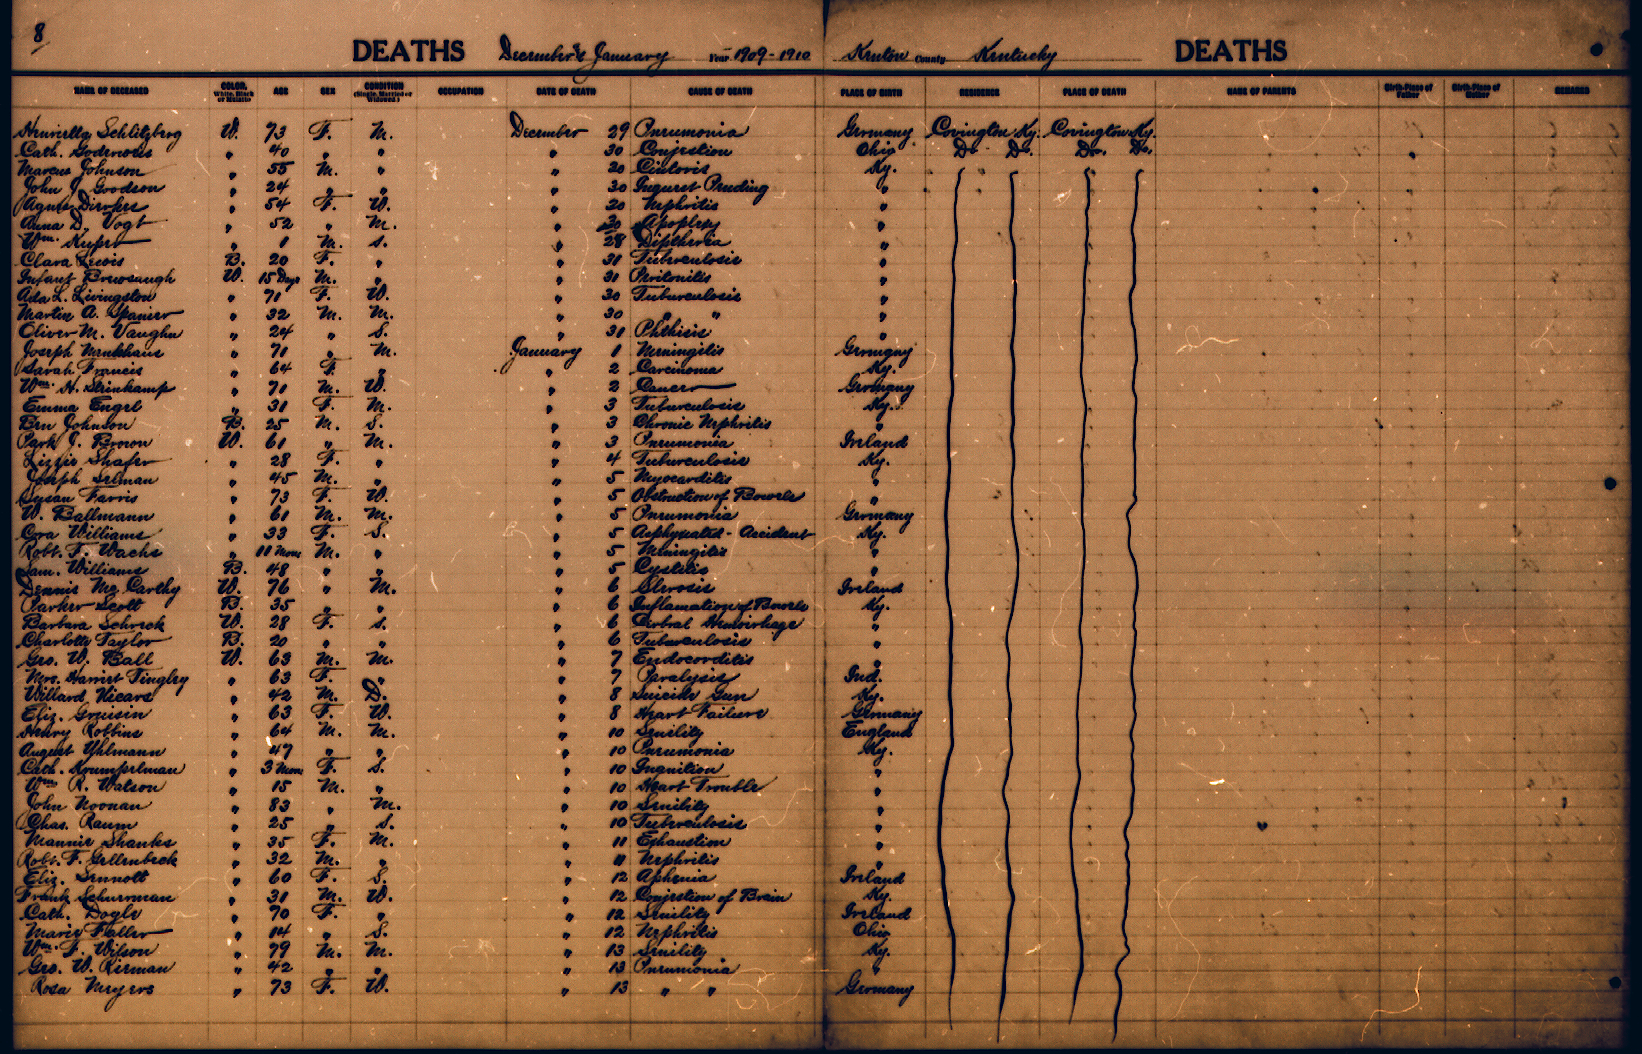 8
DEATHS December & January Year 1909-1910 Kenton County Kentucky DEATHS
NAME OF DECEASED COLOR, White, Black or Mulatto AGE SEX CONDITION (Single, Married or Widowed.) OCCUPATION DATE OF DEATH CAUSE OF DEATH PLACE OF BIRTH RESIDENCE PLACE OF DEATH NAME OF PARENTS Birth-Place of Father Birth-Place of Mother REMARKS
Henrietta Schlitzberg W. 73 F. M. December 29 Pneumonia Germany Covington Ky. Covington Ky.
Cath. " 40 " " " 30 Conjestion Ohio Do. Do. Do. Do.
Marcus Johnson " 55 M. " " 20 Ky.
John J. Goodson " 24 " " " 30 Inquest Pending "
Agnes " 54 F. W. " 20 Nephritis "
Anna D. Vogt " 52 " M. " 30 Apoplexy "
Wm. Kuper " 1 M. S. " 28 Diptheria "
Clara Lewis B. 20 F. " " 31 Tuberculosis "
Infant Brewsaugh W. 15 Days M. " " 31 Peritonitis "
Ada L. Livingston " 71 F. W. " 30 Tuberculosis "
Martin A. Spanier " 32 M. M. " 30 " " "
Oliver M. Vaughn " 24 " S. " 31 Phthisis "
Joseph Menkhaus " 71 " M. January 1 Meningitis Germany
Sarah Francis " 64 F. " " 2 Carcinoma Ky.
Wm. H. Steinkamp " 71 M. W. " 2 Cancer Germany
Emma Engel " 31 F. M. " 3 Tuberculosis Ky.
Ben Johnson B. 25 M. S. " 3 Chronic Nephritis "
Park J. Brown W. 61 " M. " 3 Pneumonia Ireland
Lizzie Shafer " 28 F. " " 4 Tuberculosis Ky.
Joseph Selman " 45 M. " " 5 Myocarditis "
Susan Farris " 73 F. W. " 5 Obstruction of Bowels "
W. Ballmann " 61 M. M. " 5 Pneumonia Germany
Cora Williams " 33 F. S. " 5 Asphyxiated - Accident Ky.
Robt. F. Wachs " 11 Mons M. " " 5 Meningitis "
Sam. Williams B. 48 " " " 5 Cystitis "
Dennis Mc Carthy W. 76 " M. " 6 Slerosis Ireland
Parker Scott B. 35 " " " 6 Inflamation of Bowels Ky.
Barbara Schreck W. 28 F. S. " 6 Cerbral Hemorrhage "
Charlotte Taylor B. 20 " " " 6 Tuberculosis "
Geo. W. Ball W. 63 M. M. " 7 Endocorditis "
Mrs. Harriet Tingley " 63 F. " " 7 Paralysis Ind.
Willard Vicars " 42 M. D. " 8 Suicide Gun Ky.
Eliz. Greisin " 63 F. W. " 8 Heart Failure Germany
Henry Robbins " 64 M. M. " 10 Senility England
August Uhlmann " 47 " " " 10 Pneumonia Ky.
Cath. Krumpelman " 3 Mons F. S. " 10 Inanition "
Wm. R. Watson " 15 M. " " 10 Heart Trouble "
John Noonan " 83 " M. " 10 Senility "
Chas. Raum " 25 " S. " 10 Tuberculosis "
Mannie Shanks " 35 F. M. " 11 Exhaustion "
Robt. F. Gellenbeck " 32 M. " " 11 Nephritis "
Eliz. Sennott " 60 F. S. " 12 Aphenia Ireland
Frank Schuerman " 31 M. W. " 12 Conjestion of Brain Ky.
Cath. Dogle " 70 F. " " 12 Senility Ireland
Marie Faller " 14 " S. " 12 Nephritis Ohio
Wm. F. Wilson " 79 M. M. " 13 Senility Ky.
Geo. W. Rieman " 42 " " " 13 Pneumonia "
Rosa Meyers " 73 F. W. " 13 " " Germany